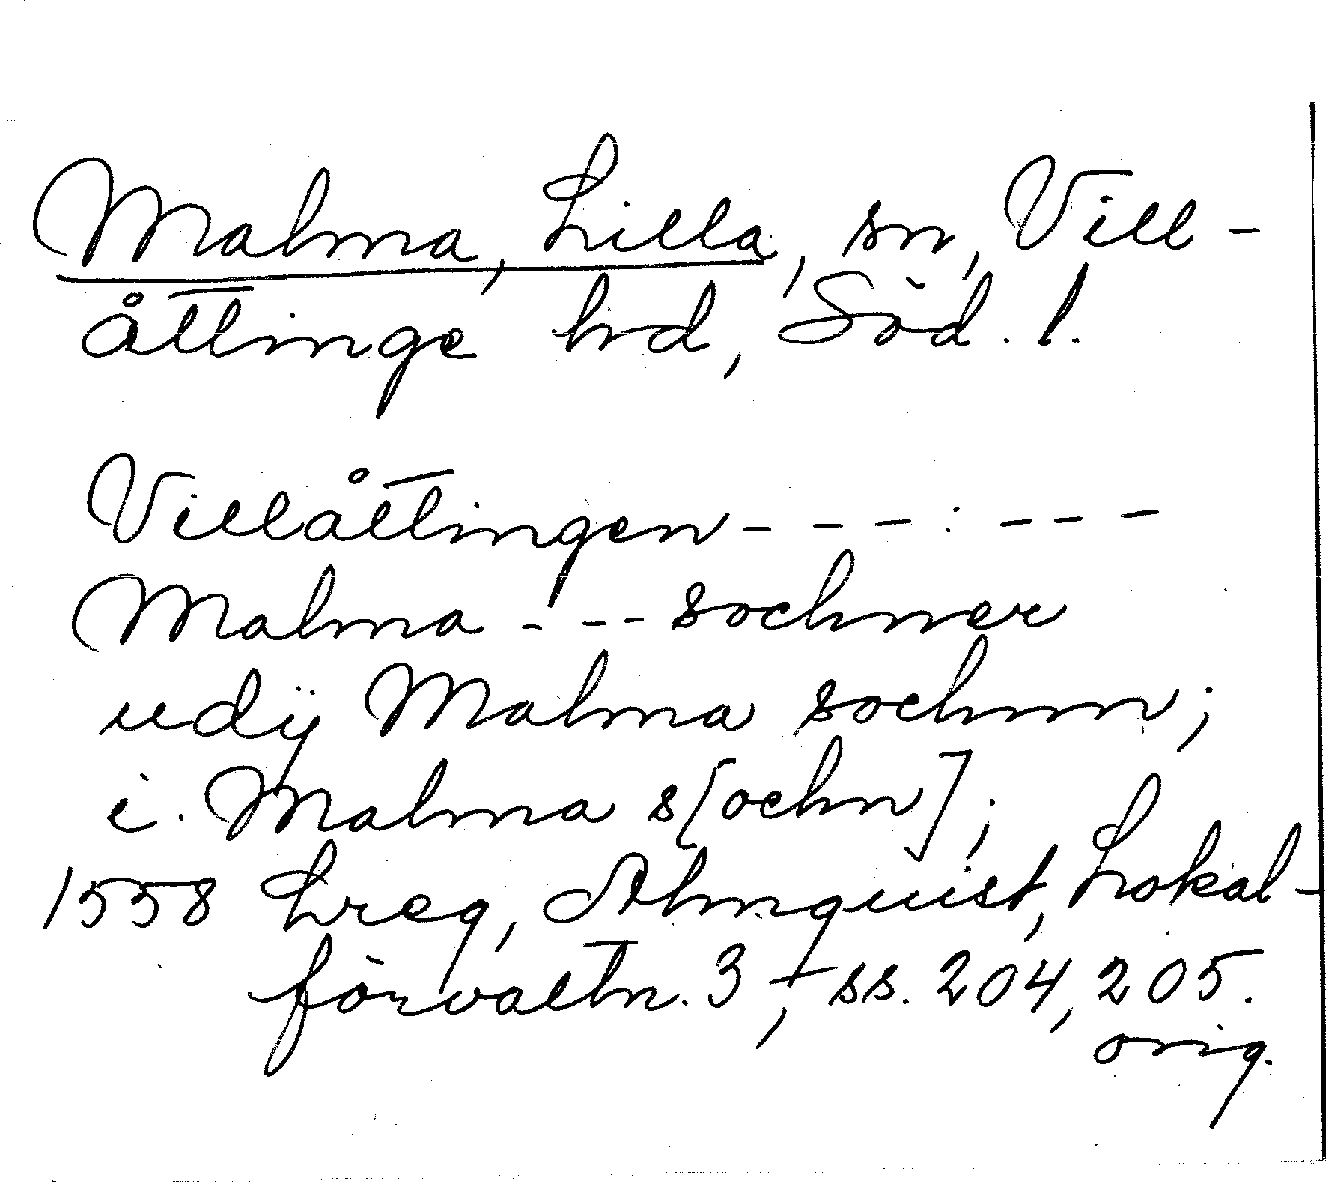 Malma, Lilla, sn, Vill-
åttinge hd, Söd. l.
Villåttingen - - - : - - -
Malma - - - sochner
udÿ Malma sochnn;
i. Malma s[ochn];
1558 Lreg, Almquist, Lokal-
förvaltn. 3, ss. 204, 205.
orig.